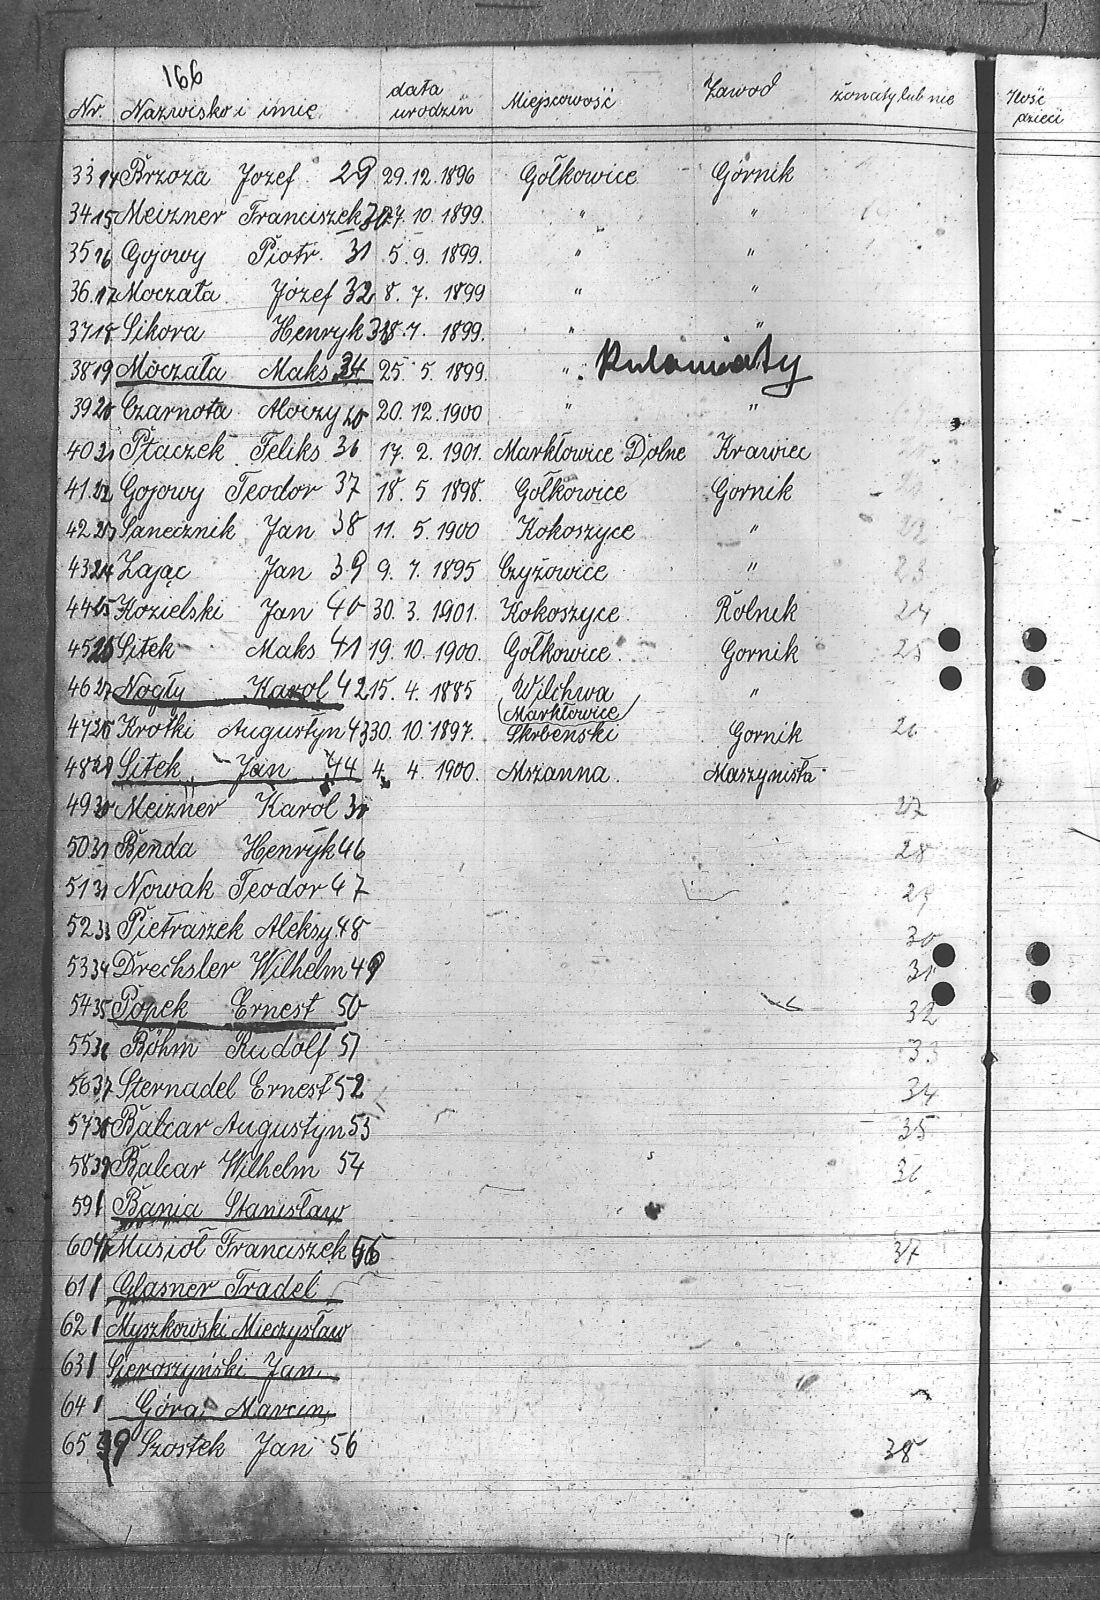 166
Nr. Nazwisko i imię data urodzin Miejscowość Zawód żonaty lub nie Ilość dzieci
33 14 Brzoza Jozef 29 29.12.1896 Gołkowice Górnik
34 15 Meizner Franciszek 30 27.10.1899. " "
35 16 Gojowy Piotr. 31 5.9.1899. " "
36. 17 Moczała Józef 32 8.7.1899 " "
37 18 Sikora Henryk 33 18.7.1899. " "
38 19 Moczała Maks 34 25.5.1899. "
39 20 Czarnota Aloczy 20.12.1900 " "
40 21 Ptaczek Feliks 36 17.2.1901. Markłowice Dolne Krawiec
41. 22 Gojowy Teodor 37 18.5 1898. Gołkowice Gornik
42. 23 Sanecznik Jan 38 11.5.1900 Kokoszyce " 22
43 24 Zając Jan 39 9.7.1895 Czyżowice " 23
44 25 Kozielski Jan 40 30.3.1901. Kokoszyce Rolnik 24
45 26 Sitek Maks 41 19.10.1900. Gołkowice Gornik 25
46 27 Nogły Karol 42 15.4.1885 Wilchwa "
(Markłowice)
47 28 Krotki Augustyn 43 30.10.1897. Skrbenski Gornik 26
48 29 Sitek Jan 44 4.4.1900. Mszanna. Maszynista
49 30 Meizner Karol 27
50 31 Benda Henryk 46 28
51 Nowak Teodor 47 29
52 33 Pietraszek Aleksy 48 30
53 34 Drechsler Wilhelm 49 31
54 35 Popek Ernest 50 32
55 36 Böhm Rudolf 51 33
56 37 Sternadel Ernest 52 34
57 38 Balcar Augustyn 53 35
58 39 Balcar Wilhelm 54 36
59 1 Bania Stanisław
60 Musioł Franciszek 37
61 1 Glasner Fradel
62 1 Myszkowski Mieczysław
63 1 Sieroszyński Jan
64 1 Góra Marcin
65 39 Szostek Jan 56 38